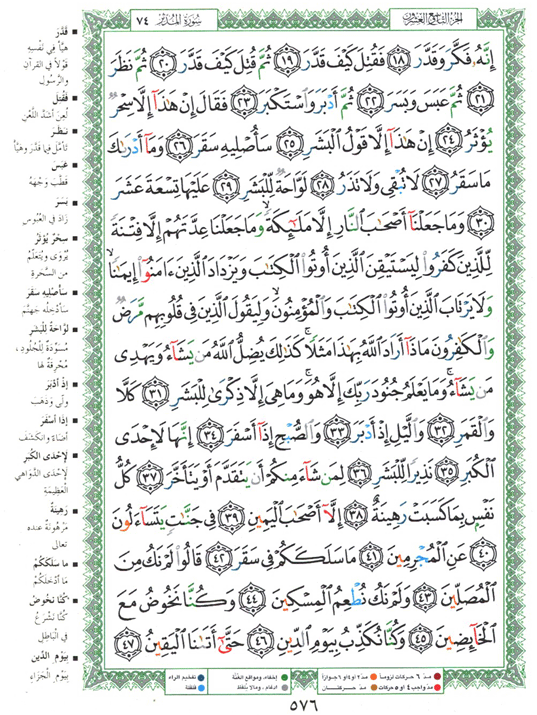 الجزء التاسع والعشرون
سورة المدثر ٧٤
إِنَّهُۥ فَكَّرَ وَقَدَّرَ ١٨ فَقُتِلَ كَيْفَ قَدَّرَ ١٩ ثُمَّ قُتِلَ كَيْفَ قَدَّرَ ٢٠ ثُمَّ نَظَرَ
٢١ ثُمَّ عَبَسَ وَبَسَرَ ٢٢ ثُمَّ أَدْبَرَ وَٱسْتَكْبَرَ ٢٣ فَقَالَ إِنْ هَٰذَآ إِلَّا سِحْرٌ
يُؤْثَرُ ٢٤ إِنْ هَٰذَآ إِلَّا قَوْلُ ٱلْبَشَرِ ٢٥ سَأُصْلِيهِ سَقَرَ ٢٦ وَمَآ أَدْرَىٰكَ
مَا سَقَرُ ٢٧ لَا تُبْقِى وَلَا تَذَرُ ٢٨ لَوَّاحَةٌ لِّلْبَشَرِ ٢٩ عَلَيْهَا تِسْعَةَ عَشَرَ
٣٠ وَمَا جَعَلْنَآ أَصْحَٰبَ ٱلنَّارِ إِلَّا مَلَٰٓئِكَةً ۙ وَمَا جَعَلْنَا عِدَّتَهُمْ إِلَّا فِتْنَةً
لِّلَّذِينَ كَفَرُوا۟ لِيَسْتَيْقِنَ ٱلَّذِينَ أُوتُوا۟ ٱلْكِتَٰبَ وَيَزْدَادَ ٱلَّذِينَ ءَامَنُوٓا۟ إِيمَٰنًا ۙ
وَلَا يَرْتَابَ ٱلَّذِينَ أُوتُوا۟ ٱلْكِتَٰبَ وَٱلْمُؤْمِنُونَ ۙ وَلِيَقُولَ ٱلَّذِينَ فِى قُلُوبِهِم مَّرَضٌ
وَٱلْكَٰفِرُونَ مَاذَآ أَرَادَ ٱللَّهُ بِهَٰذَا مَثَلًا ۚ كَذَٰلِكَ يُضِلُّ ٱللَّهُ مَن يَشَآءُ وَيَهْدِى
مَن يَشَآءُ ۚ وَمَا يَعْلَمُ جُنُودَ رَبِّكَ إِلَّا هُوَ ۚ وَمَا هِىَ إِلَّا ذِكْرَىٰ لِلْبَشَرِ ٣١ كَلَّا
وَٱلْقَمَرِ ٣٢ وَٱلَّيْلِ إِذْ أَدْبَرَ ٣٣ وَٱلصُّبْحِ إِذَآ أَسْفَرَ ٣٤ إِنَّهَا لَإِحْدَى
ٱلْكُبَرِ ٣٥ نَذِيرًا لِّلْبَشَرِ ٣٦ لِمَن شَآءَ مِنكُمْ أَن يَتَقَدَّمَ أَوْ يَتَأَخَّرَ ٣٧ كُلُّ
نَفْسٍۭ بِمَا كَسَبَتْ رَهِينَةٌ ٣٨ إِلَّآ أَصْحَٰبَ ٱلْيَمِينِ ٣٩ فِى جَنَّٰتٍ يَتَسَآءَلُونَ
٤٠ عَنِ ٱلْمُجْرِمِينَ ٤١ مَا سَلَكَكُمْ فِى سَقَرَ ٤٢ قَالُوا۟ لَمْ نَكُ مِنَ
ٱلْمُصَلِّينَ ٤٣ وَلَمْ نَكُ نُطْعِمُ ٱلْمِسْكِينَ ٤٤ وَكُنَّا نَخُوضُ مَعَ
ٱلْخَآئِضِينَ ٤٥ وَكُنَّا نُكَذِّبُ بِيَوْمِ ٱلدِّينِ ٤٦ حَتَّىٰٓ أَتَىٰنَا ٱلْيَقِينُ ٤٧
▪ قَدَّرَ
هيّأ في نفسه
قولاً في القرآن
والرّسول
▪ فقُتِلَ
لُعِنَ أشدّ اللّعن
▪ نَظَرَ
تأمّل فيما قدّر وهيّأ
▪ عَبَسَ
قطّب وجهه
▪ بَسَرَ
زاد في العبوس
▪ سِحْرٌ يُؤْثَرُ
يُروى ويُتعلّم
من السّحرة
▪ سَأُصْلِيهِ سَقَرَ
سأدخله جهنّم
▪ لوّاحةٌ للبشر
مسوّدة للجلود،
محرقة لها
▪ إذ أدبر
ولّى وذهب
▪ إذا أسفر
أضاء وانكشف
▪ لإحدى الكُبَر
لإحدى الدّواهي
العظيمة
▪ رهينة
مرهونة عنده
تعالى
▪ ما سلككم
ما أدخلكم
▪ كنّا نخوض
كنّا نشرع
في الباطل
▪ بيوم الدّين
بيوم الجزاء
مدّ ٦ حركات لزوماً
مدّ ٢ أو ٤ أو ٦ جوازاً
إخفاء، ومواقع الغنّة
تفخيم الراء
مدّ واجب ٤ أو ٥ حركات
مدّ حركتان
ادغام، وما لا يلفظ
قلقلة
٥٧٦